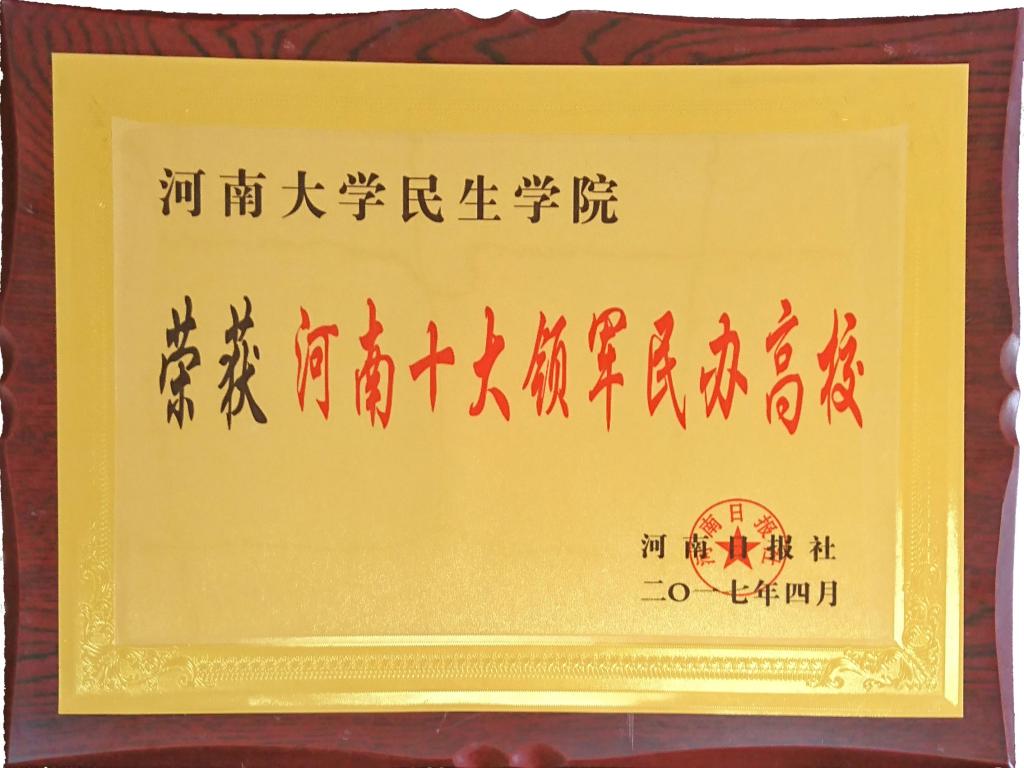 河南大学民生学院
荣获 河南十大领军民办高校
河南日报社
河南日报社
二〇一七年四月